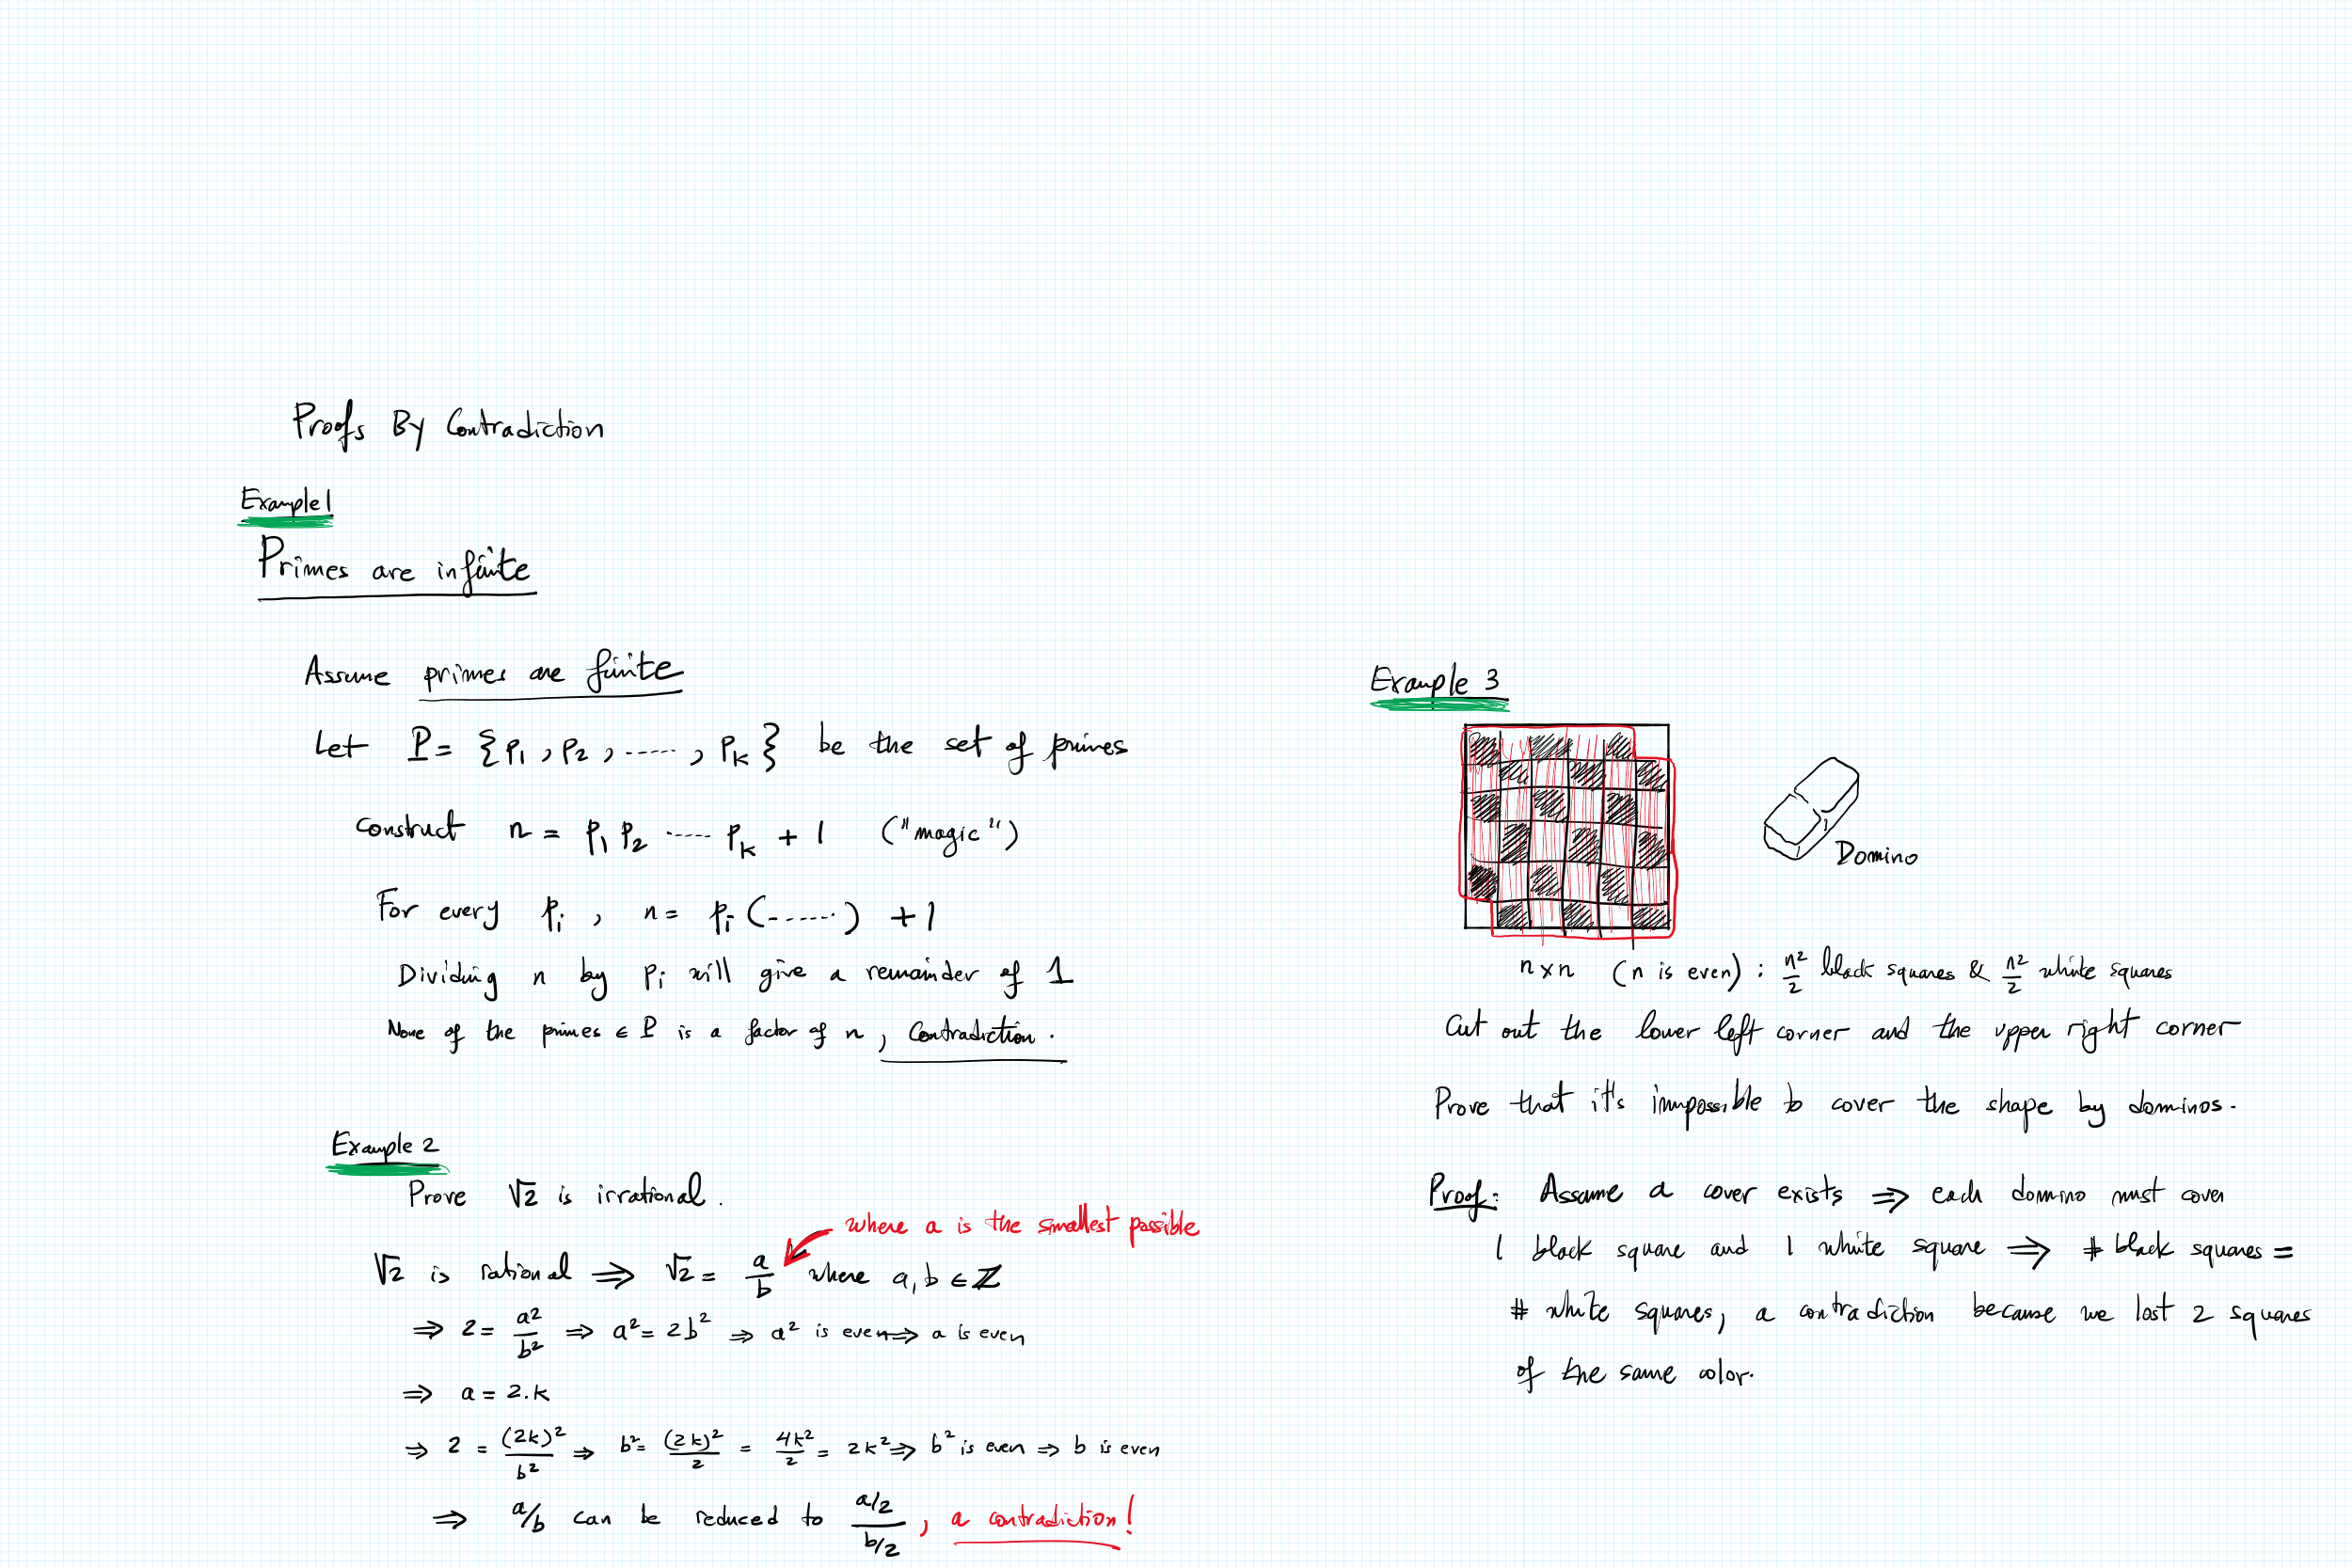 Proofs By Contradiction
Example 1
Primes are infinite
Assume primes are finite
Let P = {p₁, p₂, ....., pₖ} be the set of primes
construct n = p₁ p₂ ..... pₖ + 1 ("magic")
For every pᵢ, n = pᵢ (......) + 1
Dividing n by pᵢ will give a remainder of 1
None of the primes ∈ P is a factor of n, Contradiction.
Example 2
Prove √2 is irrational.
where a is the smallest possible
√2 is rational ⇒ √2 = a/b where a, b ∈ ℤ
⇒ 2 = a²/b² ⇒ a² = 2b² ⇒ a² is even ⇒ a is even
⇒ a = 2.k
⇒ 2 = (2k)²/b² ⇒ b² = (2k)²/2 = 4k²/2 = 2k² ⇒ b² is even ⇒ b is even
⇒ a/b can be reduced to (a/2)/(b/2), a contradiction!
Example 3
Domino
n×n (n is even) : n²/2 black squares & n²/2 white squares
Cut out the lower left corner and the upper right corner
Prove that it's impossible to cover the shape by dominos.
Proof: Assume a cover exists ⇒ each domino must cover
1 black square and 1 white square ⇒ # black squares =
# white squares, a contradiction because we lost 2 squares
of the same color.